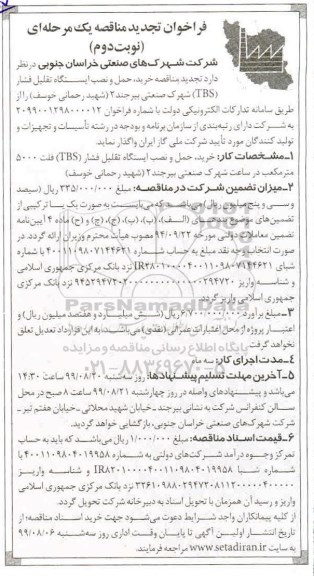 فراخوان تجدید مناقصه یک مرحله‌ای
(نوبت دوم)
شرکت شهرک‌های صنعتی خراسان جنوبی در نظر
دارد تجدید مناقصه خرید، حمل و نصب ایستگاه تقلیل فشار
(TBS) شهرک صنعتی بیرجند ۲ (شهید رحمانی خوسف) را از
طریق سامانه تدارکات الکترونیکی دولت با شماره فراخوان ۲۰۹۹۰۰۱۲۹۸۰۰۰۰۱۲
به شرکت دارای رتبه‌بندی از سازمان برنامه و بودجه در رشته تأسیسات و تجهیزات و
تولید کنندگان مورد تأیید شرکت ملی گاز ایران واگذار نماید.
۱ـ مشخصات کار: خرید، حمل و نصب ایستگاه تقلیل فشار (TBS) فلت ۵۰۰۰
مترمکعب در ساعت شهرک صنعتی بیرجند ۲ (شهید رحمانی خوسف)
۲ـ میزان تضمین شرکت در مناقصه: مبلغ ۳۳۵/۰۰۰/۰۰۰ ریال (سیصد
و سی و پنج میلیون ریال) می‌باشد که می‌بایست به صورت یک یا ترکیبی از
تضمین‌های موضوع بندهای (الف)، (ب)، (پ)، (ج)، (ح) و (خ) ماده ۴ آیین‌نامه
تضمین معاملات دولتی مورخه ۹۴/۰۹/۲۲ مصوب هیأت محترم وزیران ارائه گردد. در
صورت انتخاب وجه نقد مبلغ به حساب شماره ۴۰۰۱۱۰۹۸۰۷۱۴۴۶۲۱ با شماره
شبای
نزد بانک مرکزی جمهوری اسلامی
و شناسه واریز
نزد بانک مرکزی
جمهوری اسلامی واریز گردد.
۳ـ مبلغ برآورد ۶/۷۰۰/۰۰۰/۰۰۰ ریال (شش میلیارد و هفتصد میلیون ریال) و
اعتبار پروژه از محل اعتبارات عمرانی (نقدی) می‌باشد. به این قرارداد تعدیل تعلق
نخواهد گرفت.
۴ـ مدت اجرای کار: سه ماه
۵ـ آخرین مهلت تسلیم پیشنهادها: روز سه‌شنبه ۹۹/۰۸/۲۰ ساعت ۱۴:۳۰
می‌باشد و پیشنهادهای واصله در روز چهارشنبه ۹۹/۰۸/۲۱ ساعت ۸ صبح در محل
سالن کنفرانس شرکت به نشانی بیرجند ـ خیابان شهید محلاتی ـ خیابان هفتم تیر ـ
شرکت شهرک‌های صنعتی خراسان جنوبی، بازگشایی خواهد گردید.
۶ـ قیمت اسناد مناقصه: مبلغ ۱/۰۰۰/۰۰۰ ریال می‌باشد که باید به حساب
تمرکز وجوه درآمد شرکت‌های دولتی به شماره ۴۰۰۱۱۰۹۸۰۴۰۱۹۹۵۸ با
شماره شبا
و شناسه واریز
نزد بانک مرکزی جمهوری اسلامی ایران
واریز و رسید آن همزمان با تحویل اسناد به دبیرخانه شرکت تحویل گردد.
از کلیه پیمانکاران واجد شرایط دعوت می‌شود جهت خرید اسناد مناقصه؛ از
تاریخ انتشار اولین آگهی تا پایان وقت اداری روز سه‌شنبه ۹۹/۰۸/۰۶
به سایت www.setadiran.ir مراجعه فرمایند.
ParsNamadData
پایگاه اطلاع رسانی مناقصه و مزایده
۰۲۱-۸۸۳۴۹۶۷۰